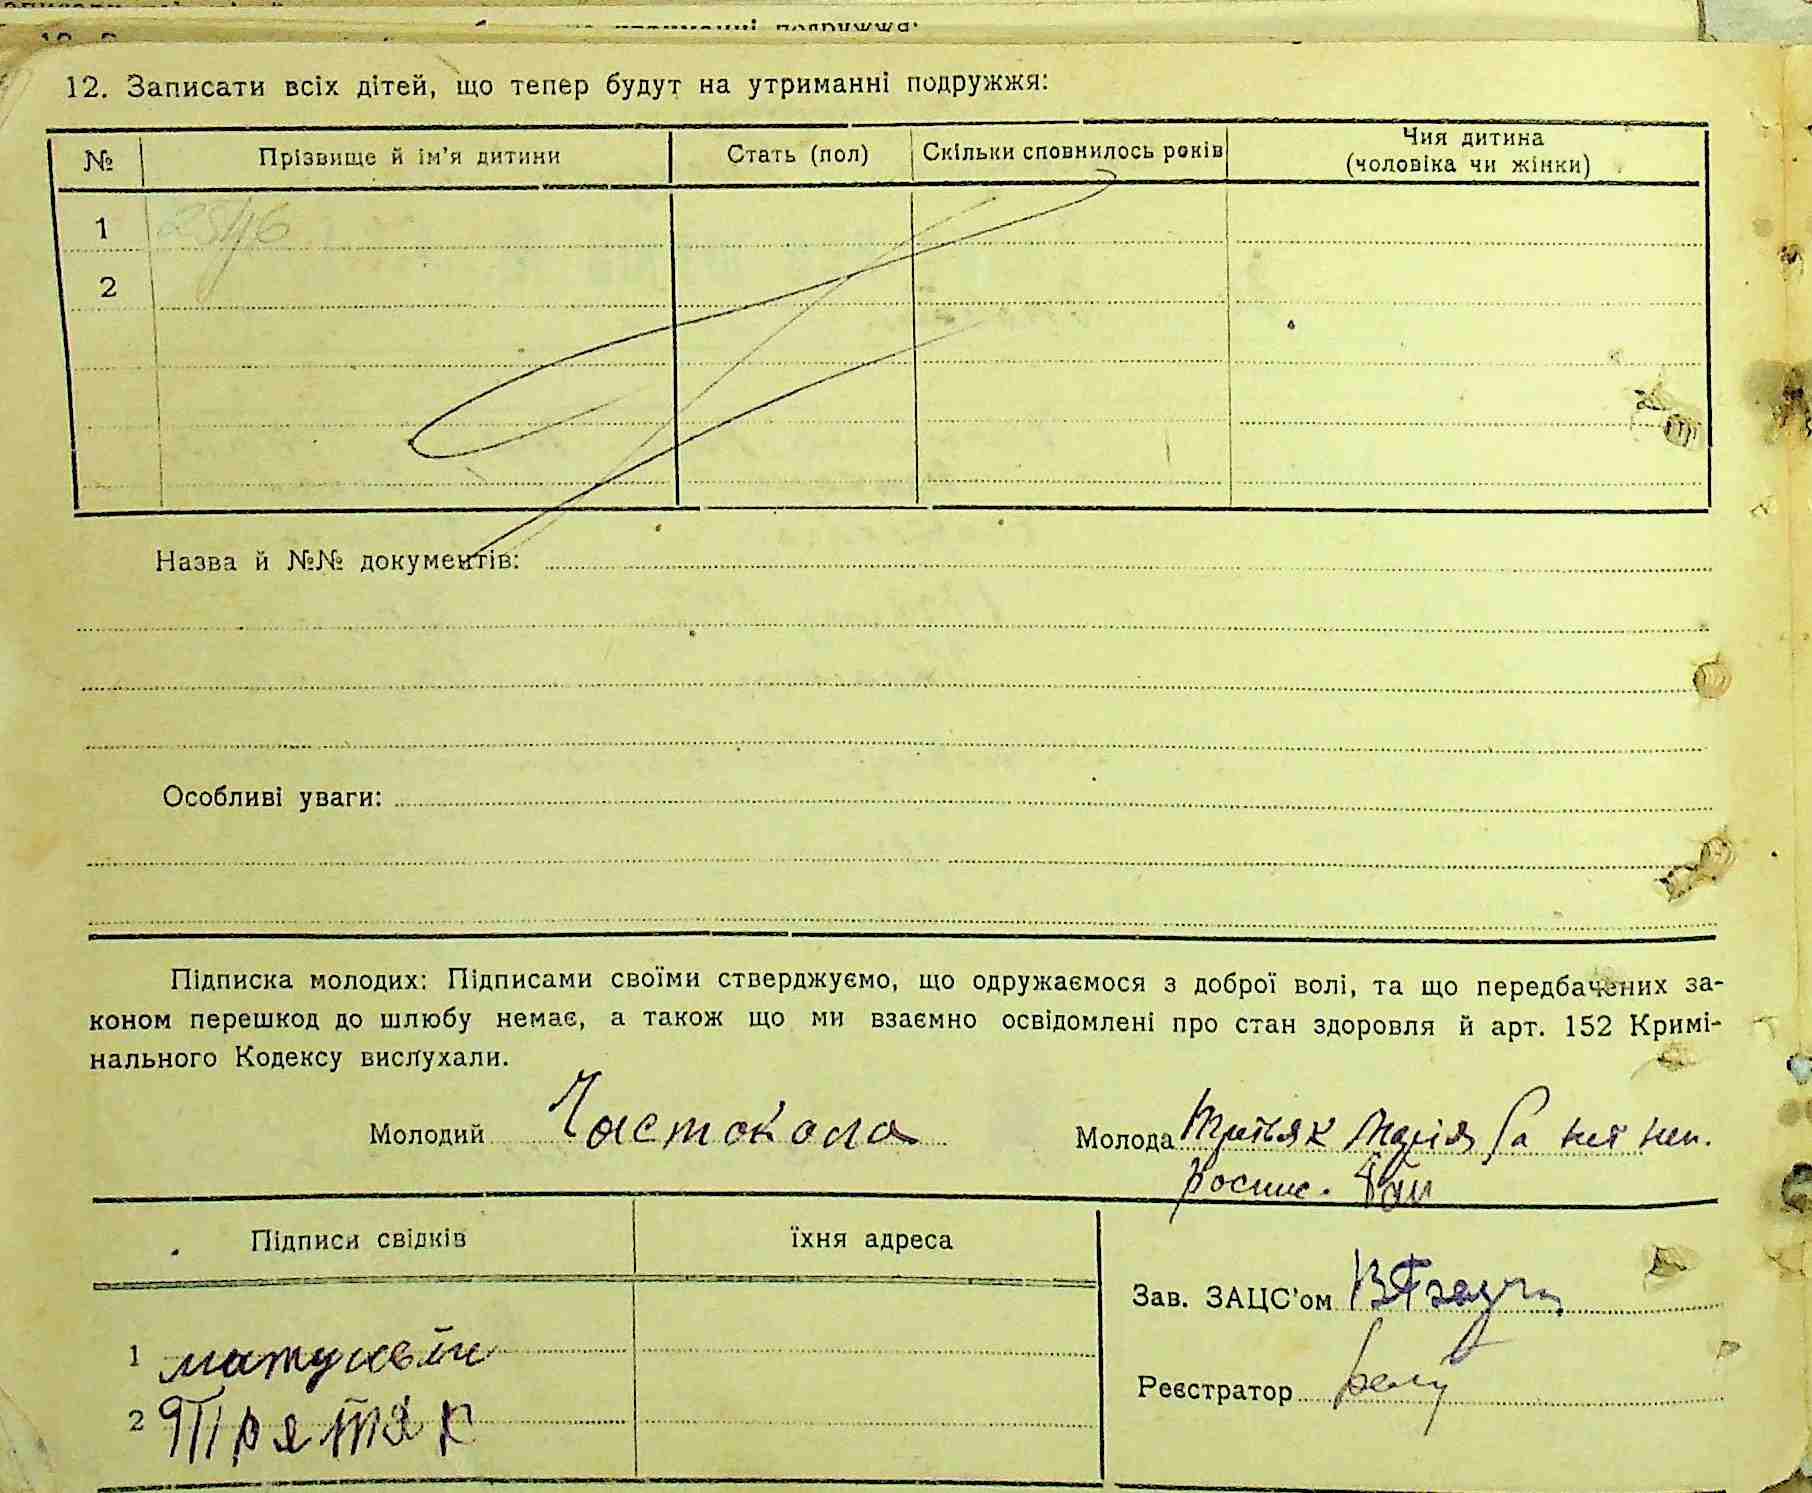 12. Записати всіх дітей, що тепер будут на утриманні подружжя:
№ Прізвище й ім'я дитини Стать (пол) Скільки сповнилось років Чия дитина (чоловіка чи жінки)
1
2
Назва й №№ документів:
Особливі уваги:
Підписка молодих: Підписами своїми стверджуємо, що одружаємося з доброї волі, та що передбачених за-
коном перешкод до шлюбу немає, а також що ми взаємно освідомлені про стан здоровля й арт. 152 Кримі-
нального Кодексу вислухали.
Молодий Частокола Молода Третьяк Марія
Підписи свідків їхня адреса
Зав. ЗАЦС'ом
1
Реєстратор
2 Претяк